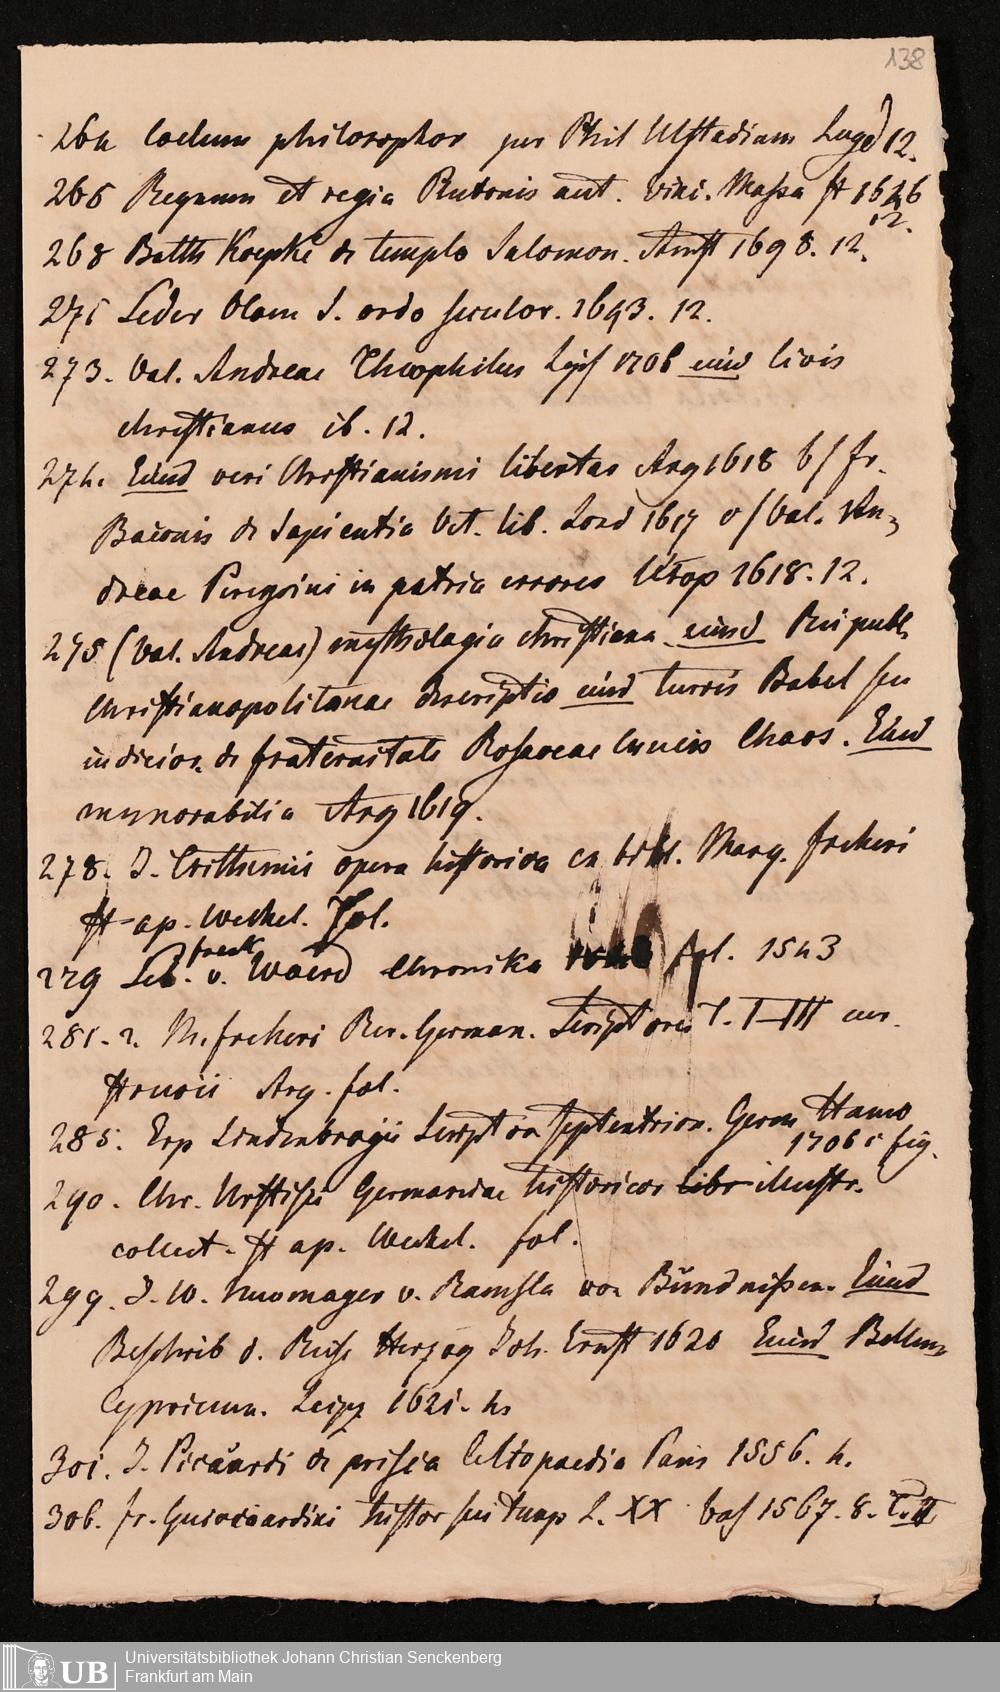 138
264 Coelum philosophor per Phil Ulstadium Lugd 12.
266 Regnum et regia Plutonis aut. Vini. Massa Ff 1626
12.
268 Balth Koepke de templo Salomon. Amst 1698. 12.
271 Seder Olam S. ordo seculor. 1693. 12.
273. Val. Andreae Theophilus Leips 1706 eiusd Civis
christianus ib. 12.
274. Eiusd veri Christianismi libertas Arg 1618 b/ Fr.
Baconis de Sapientia Vet. lib. Lond 1617 c/ Val. An-
dreae Peregrini in patria errores Utop 1618. 12.
275 (Val. Andreae) mythologia christiana eiusd Reipubl.
Christianopolitanae descriptio eiusd turris Babel seu
iudicior. de fraternitate Rosaceae Crucis Chaos. Eiusd
memorabilia Arg 1619.
278. J. Trithemii opera historica ex bibl. Marq. Freheri
Ff ap. Wechel. Fol.
279 Seb. Franck v. Woerd Chronika fol. 1543
281. 2. M. Freheri Rer. German. Scriptores T. I-III cur.
Struvii Arg. fol.
285. Erp Lindenbrogii Script rer septentrion. Germ Hamb
1706 c fig.
290. Chr. Urstisii Germaniae historicor libr illustr.
collect. Ff ap. Wechel. fol.
299. J. W. Neumayer v. Ramsla von Bündnißen. Eiusd
Beschrib d. Reise Herzog Joh. Ernst 1620 Eiusd Bellum
Cyprium. Leipz 1621. 4
301. J. Picardi de prisca Celtopaedia Paris 1556. 4.
306. Fr. Guicciardini histor sui temp L. XX Bas 1567. 8. T. II
Universitätsbibliothek Johann Christian Senckenberg
UB
Frankfurt am Main